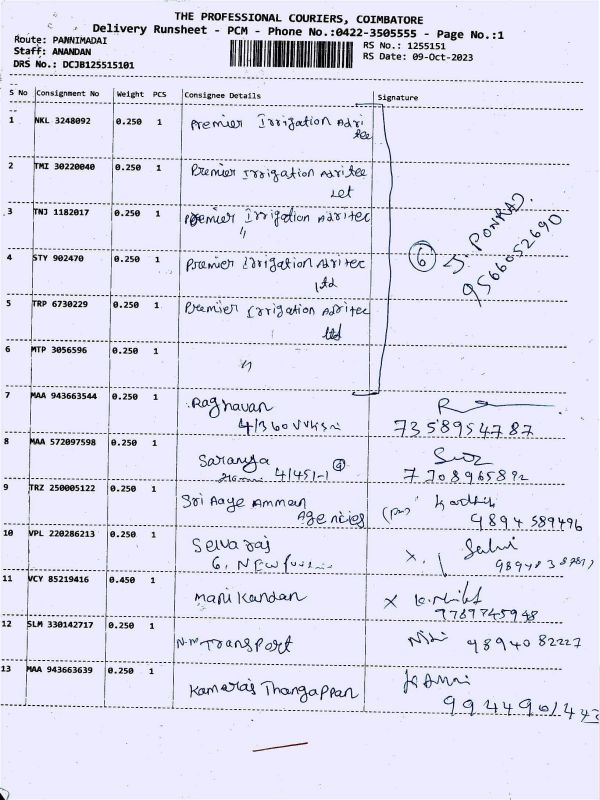 THE PROFESSIONAL COURIERS, COIMBATORE
Delivery Runsheet - PCM - Phone No.:0422-3505555 - Page No.:1
Route: PANNIMADAI
Staff: ANANDAN
DRS No.: DCJB125515101
RS No.: 1255151
RS Date: 09-Oct-2023
S No Consignment No Weight PCS Consignee Details Signature
1 NKL 3248092 0.250 1 Premier Irrigation Adri
tec
2 TMI 30220040 0.250 1 Premier Irrigation Adritec
Let
3 TNJ 1182017 0.250 1 Premier Irrigation Adritec
"
6 J. PONRAJ.
9566052690
4 STY 902470 0.250 1 Premier Irrigation Adritec
Ltd
5 TRP 6730229 0.250 1 Premier Irrigation Adritec
ltd
6 MTP 3056596 0.250 1 "
7 MAA 943663544 0.250 1 Raghavan
4/360 VVKSM
7358954787
8 MAA 572097598 0.250 1 Saranya
4/451-1
7708965892
9 TRZ 250005122 0.250 1 Sri Aaye Amman
Agencies
Karthik
9894589496
10 VPL 220286213 0.250 1 Selvaraj
6, New
X
11 VCY 85219416 0.450 1 Manikandan
X
7767745948
12 SLM 330142717 0.250 1 N.M Transport
9894082227
13 MAA 943663639 0.250 1 Kamaraj Thangappan